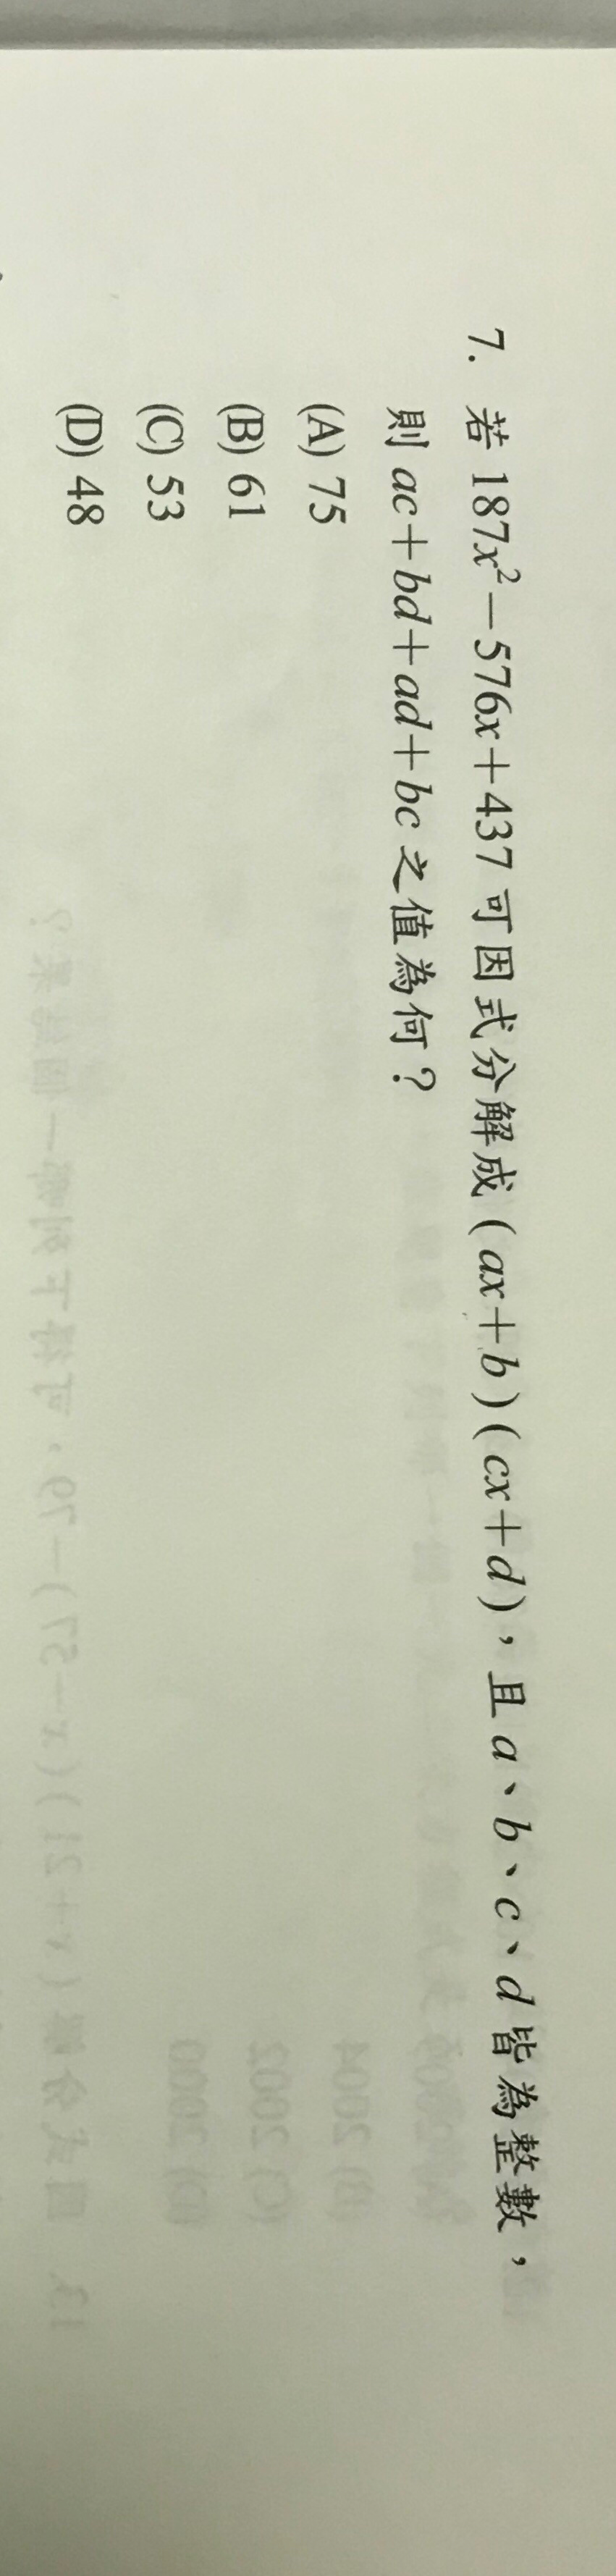 7. 若 187x²－576x＋437 可因式分解成 (ax＋b)(cx＋d)，且 a、b、c、d 皆為整數，
則 ac＋bd＋ad＋bc 之值為何？
(A) 75
(B) 61
(C) 53
(D) 48